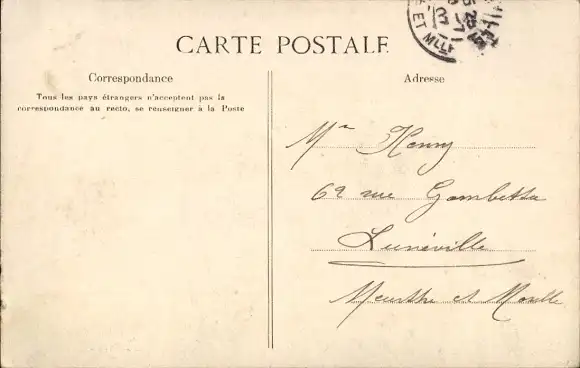 CARTE POSTALE
Correspondance
Tous les pays étrangers n'acceptent pas la
correspondance au recto, se renseigner à la Poste
Adresse
Mr Henry
62 rue Gambetta
Lunéville
Meurthe et Moselle
ET MLLE